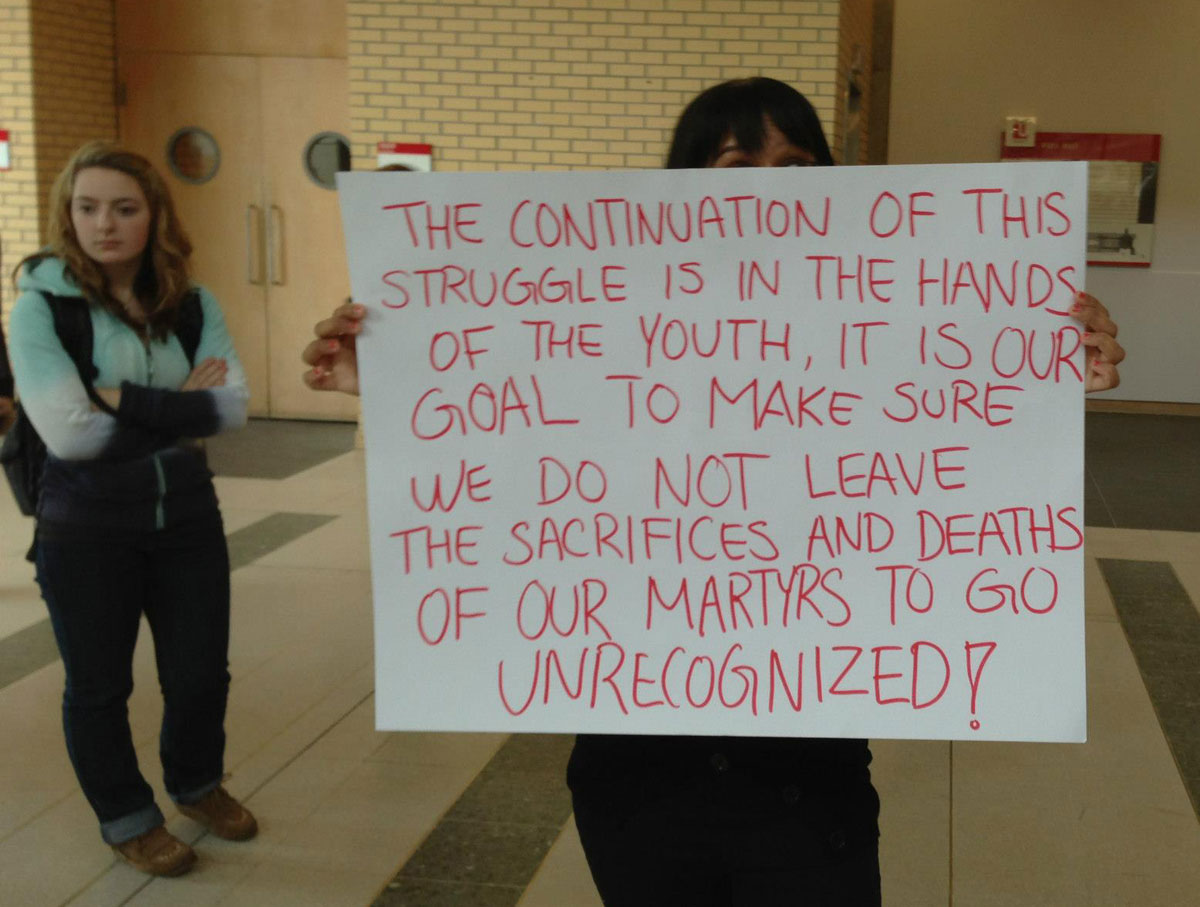 THE CONTINUATION OF THIS
STRUGGLE IS IN THE HANDS
OF THE YOUTH, IT IS OUR
GOAL TO MAKE SURE
WE DO NOT LEAVE
THE SACRIFICES AND DEATHS
OF OUR MARTYRS TO GO
UNRECOGNIZED!